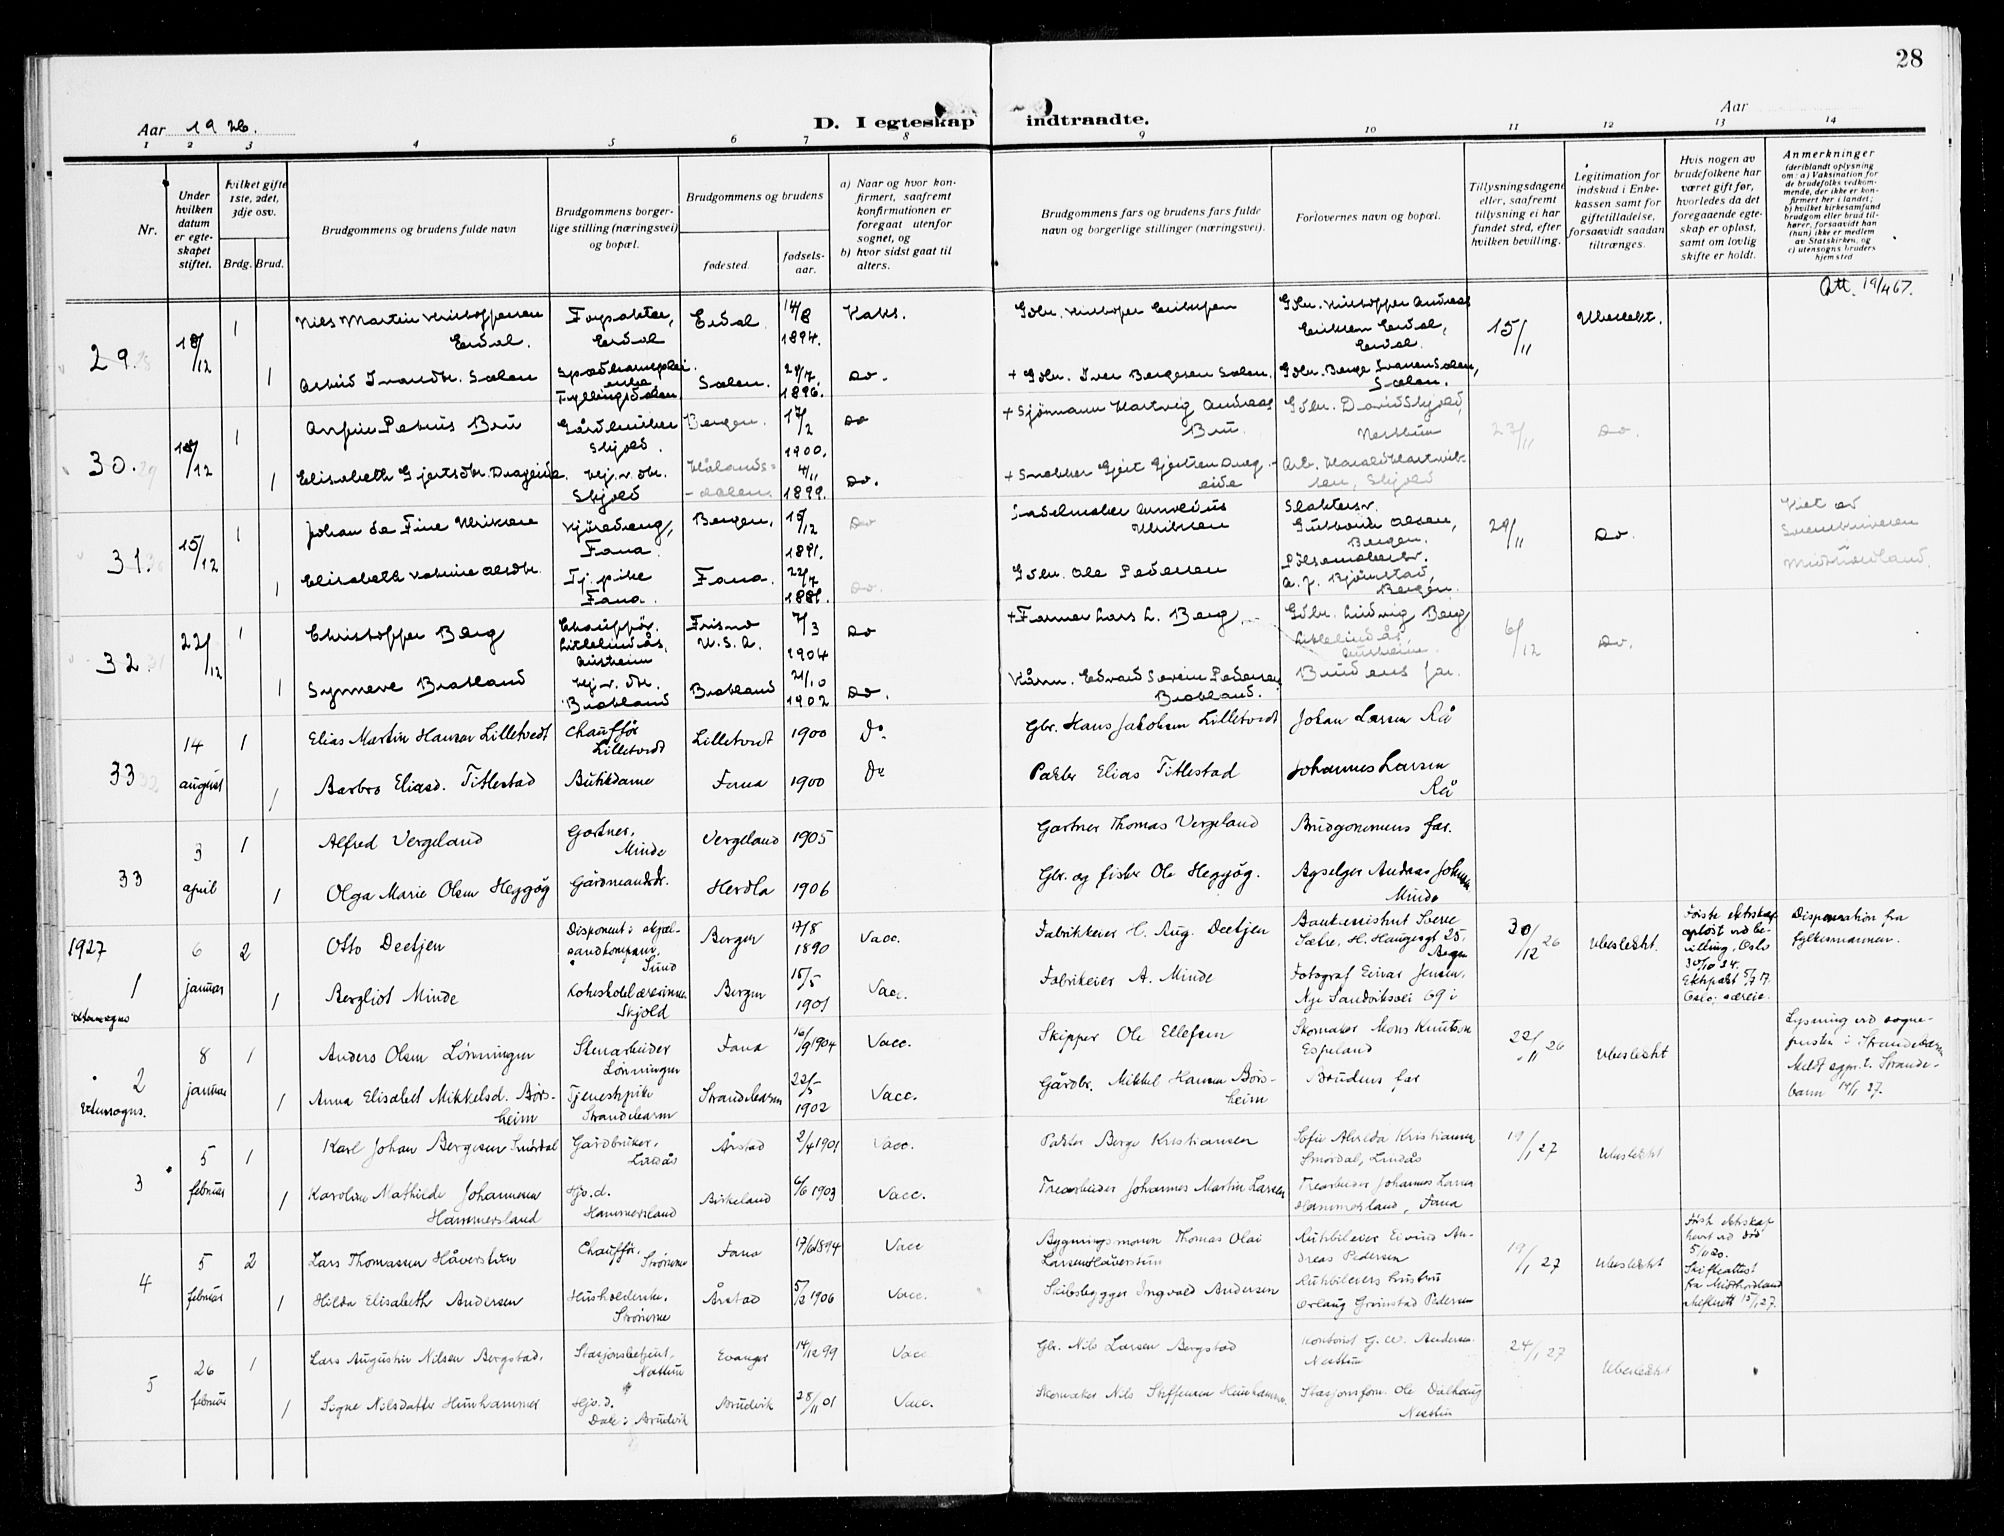 28
Aar 1926.
D. I egteskap indtraadte.
Aar
1 2 3 4 5 6 7 8 9 10 11 12 13 14
Nr.
Under hvilken datum er egteskapet stiftet.
Hvilket gifte 1ste, 2det, 3dje osv.
Brdg. Brud.
Brudgommens og brudens fulde navn
Brudgommens borgerlige stilling (næringsvei) og bopæl.
Brudgommens og brudens
fødested.
fødselsaar.
a) Naar og hvor konfirmert, saafremt konfirmationen er foregaat utenfor sognet, og
b) hvor sidst gaat til alters.
Brudgommens fars og brudens fars fulde navn og borgerlige stillinger (næringsvei).
Forlovernes navn og bopæl.
Tillysningsdagene eller, saafremt tillysning ei har fundet sted, efter hvilken bevilling.
Legitimation for indskud i Enkekassen samt for giftetilladelse, forsaavidt saadan tiltrænges.
Hvis nogen av brudefolkene har været gift før, hvorledes da det foregaaende egteskap er opløst, samt om lovlig skifte er holdt.
Anmerkninger (deriblandt oplysning om: a) Vaksination for de brudefolks vedkommende, der ikke er konfirmert her i landet; b) hvilket kirkesamfund brudgom eller brud tilhører, forsaavidt han (hun) ikke er medlem av Statskirken, og c) utensogns bruders hjemsted
Att. 19/4 67.
29. 18/12 1 Nils Martin Kristoffersen Eidal. Forpakter, Eidal Eidal. 14/8 1894. Vaks. Gbr. Kristoffer Eriksen Gbr. Kristoffer Andreas Eriksen Eidal, Eidal. 15/11 Ubeslekt.
1 Astrid Ivarsdtr. Sælen Fyllingsdalen Sælen. 29/7. 1896. Do. + Gbr. Iver Bergesen Sælen. Gbr. Berge Iversen Sælen, Sælen.
30. 18/12 1 Anfin Petrus Bru Gårdbruker Skjold. Bergen. 17/2 1900. Do + Sjømann Hartvig Andreas Bru. Gbr. David Skjold, Nesttun 27/11 Do.
1 Elisabeth Gjertsdtr. Drageide Hj.v. dtr. Skjold Hålandsdalen. 4/11 1899. Do. + Snekker Gjert Gjertsen Drageide Arb. Harald Hartviksen, Skjold
31. 15/12 1 Johan da Fine Ulriksen Kjøredreng, Fana. Bergen. 15/12 1891. Do Sadelmaker Ulriksen Slaktersv. Olsen, Bergen. 29/11 Do. Viet av Sorenskriveren Midthordland.
1 Elisabeth Katrine Olsdtr. Tj. pike Fana. Fana. 22/7 1881. Do. Gbr. Ole Pedersen Pølsemakersv. A. J. Bjørnstad, Bergen.
32. 22/12 1 Christoffer Berg Chauffør. Litlelindås, Austheim Frisno U.S.A. 7/3 1904 Do + Farmer Lars L. Berg. Gbr. Ludvig Berg Litlelindås, Austheim. 6/12 Do.
1 Synneve Bratland Hj.v. dtr. Bratland Bratland 21/10 1902 Do. Kårm. Edvard Severin Pedersen Bratland. Brudens far.
33 14 august 1 Elias Martin Hansen Lilletvedt Chauffør Lilletvedt Lilletvedt 1900 Do Gbr. Hans Jakobsen Lilletvedt Johan Larsen Rå
1 Barbro Eliasd. Titlestad Butikdame Fana 1900 Do Pakkr Elias Titlestad Johannes Larsen Rå
33 3 april 1 Alfred Vergeland Gartner, Minde Vergeland 1905 Gartner Thomas Vergeland Brudgommens far.
1 Olga Marie Olsen Heggøy Gårdmandsdtr. Herdla 1906 Gbr. og fisker Ole Heggøy. Agselger Andreas Johnsen Minde
1927
1 utensogns 6 januar 2 Otto Deetjen Disponent i skjelsandkompani, Sund Bergen 17/8 1890 Vacc. Fabrikkeier H. Aug. Deetjen Bankassistent Sverre Sætre, H. Haugesgt 25, Bergen 30/12 26 Ubeslekt. Første ekteskap opløst ved bevilling, Oslo 30/10 24. Ektepakt 5/7 17. Oslo: særeie. Dispensation fra fylkesmannen.
1 Bergliot Minde Kokeskolelærerinne Skjold Bergen 15/5 1901 Vacc. Fabrikeier A. Minde Fotograf Einar Jensen, Nye Sandviksvei 69 i
2 Utensogns. 8 januar 1 Anders Olsen Lønningen Stenarbeider Lønningen Fana 16/9 1904 Vacc. Skipper Ole Ellefsen Skomaker Mons Knutsen Espeland 22/11 26 Ubeslekt Lysning ved sognepresten i Strandebarm Meldt sgpr. t. Strandebarm 14/1 27.
1 Anna Elisabet Mikkelsd. Børsheim Tjenestpike Strandebarm Strandebarm 22/5 1902 Vacc. Gårdbr. Mikkel Hansen Børsheim Brudens far
3 5 februar 1 Karl Johan Bergesen Smørdal Gårdbruker, Lindås Årstad 2/4 1901 Vacc. Pakkr Berge Kristiansen Sofie Alvilda Kristiansen Smørdal, Lindås 19/1 27 Ubeslekt
1 Karoline Mathilde Johannesen Hammersland Hjv.d. Hammersland Birkeland 6/6 1903 Vacc. Trearbeider Johannes Martin Larsen Trearbeider Johannes Larsen Hammersland, Fana
4 5 februar 2 Lars Thomassen Håverstun Chauffør, Strømme Fana 17/6 1894 Vacc Bygningsmann Thomas Olai Larsen Håverstun Rutebileier Eivind Andreas Pedersen 19/1 27 Ubeslekt Første ekteskap hevet ved død 5/1 20. Skifteattest fra Midthordland skifterett 15/1 27.
1 Hilda Elisabeth Andersen Husholderske. Strømme Årstad 5/2 1906 Vacc. Skibsbygger Ingvald Andersen Rutebileiers hustru Orlaug Grimstad Pedersen
5 26 februar 1 Lars Augustin Nilsen Bergstad. Stasjonsbetjent, Nesttun Evanger 14/12 99 Vacc. Gbr. Nils Larsen Bergstad Kontorist G. W. Andersen. Nesttun 24/1 27 Ubeslekt
1 Signe Nilsdatter Hunhammer Hjv.d. Dale i Bruvik Bruvik 28/11 01 Vacc. Skomaker Nils Steffensen Hunhammer Stasjonsform. Ole Dalhaug Nesttun